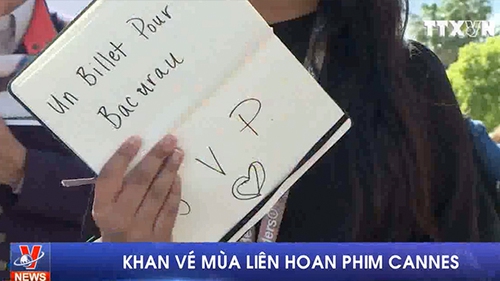 TTXVN
Un Billet Pour
Bacurau
V P
ders
V
NEWS
KHAN VÉ MÙA LIÊN HOAN PHIM CANNES